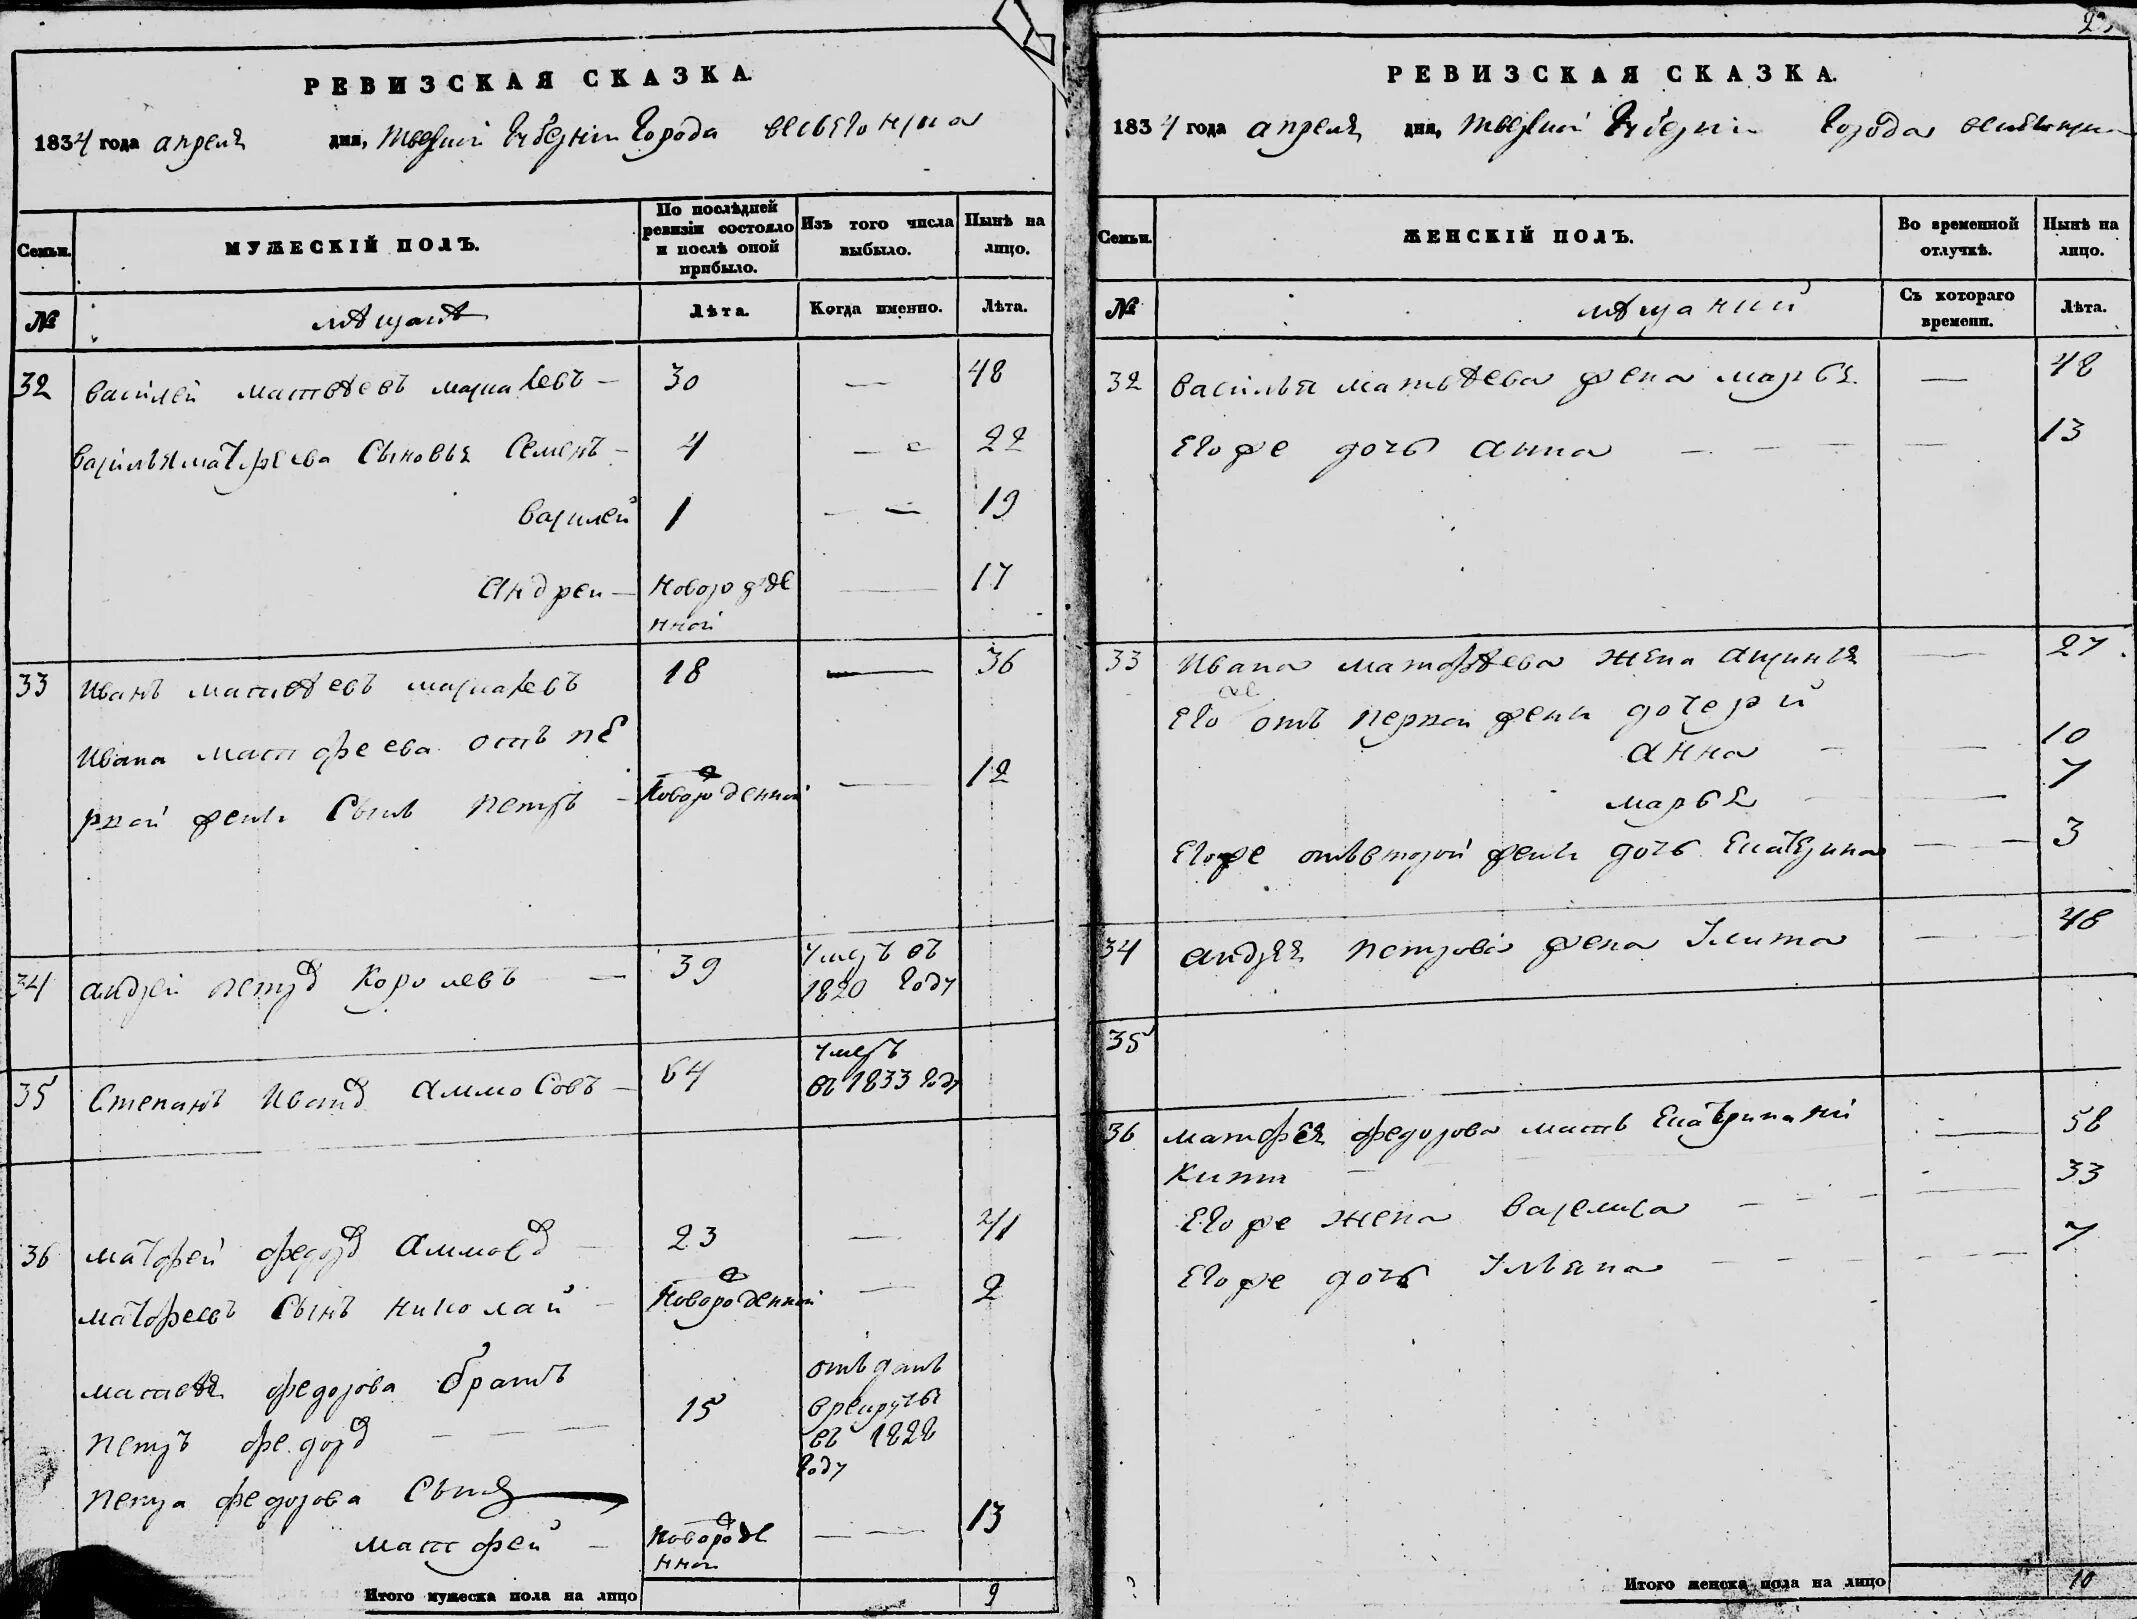 РЕВИЗСКАЯ СКАЗКА.
1834 года апреля дня, Тверской губернии города весьегонска
Семьи. МУЖЕСКІЙ ПОЛЪ. По послѣдней ревизіи состояло и послѣ оной прибыло. Изъ того числа выбыло. Нынѣ на лицо.
№ мѣщанѣ Лѣта. Когда именно. Лѣта.
32 василей матвѣевъ — 30 — 48
василья матфеева сыновья семенъ — 4 — 22
василей 1 — 19
андреи — новорожде нной — 17
33 иванъ матвѣевъ 18 — 36
ивана матфеева отъ пе
рвой жены сынъ петръ — новорожденной — 12
34 андрей петров королевъ — 39 умеръ въ 1820 году
35 степанъ иванов аммосовъ — 64 умеръ въ 1833 году
36 матфей федоров аммосов — 23 — 41
матфеевъ сынъ николай — новорожденной — 2
матвѣя федорова братъ
петръ федоров — 15 отъданъ в рекруты въ 1828 году
петра федорова сынъ
матфей — новорожде нной — 13
Итого мужеска пола на лицо 9
РЕВИЗСКАЯ СКАЗКА.
1834 года апреля дня, Тверской губернии города весьегонска
Семьи. ЖЕНСКІЙ ПОЛЪ. Во временной отлучкѣ. Нынѣ на лицо.
№ Съ котораго времени. Лѣта.
32 василья матвѣева жена марья — 48
Его же дочь анна — 13
33 ивана матфѣева жена аксинья — 27
Его отъ первой жены дочерй
анна — 10
марья — 7
Его же отъ второй жены дочь Екатерина — 3
34 андрея петрова жена улита — 48
35
36 матфея федорова мать Екатерина ни — 58
кити —
Его же жена василиса — 33
Его же дочь ульяна — 7
Итого женска пола на лицо 10